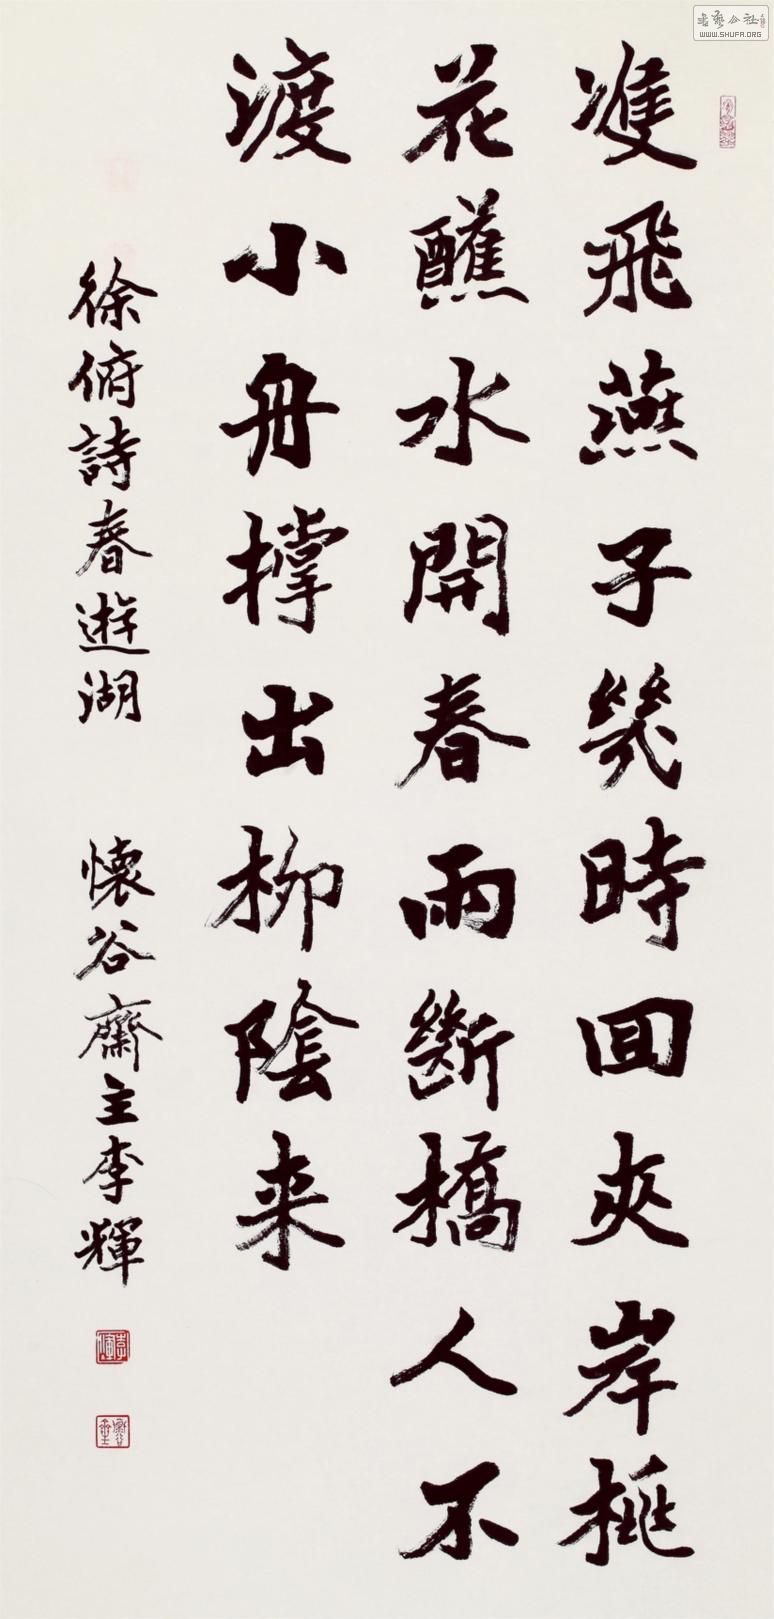 雙飛燕子幾時回夾岸桃
花蘸水開春雨斷橋人不
渡小舟撐出柳陰来
徐俯詩春遊湖 懷谷齋主李輝
李輝
书艺公社
WWW.SHUFA.ORG